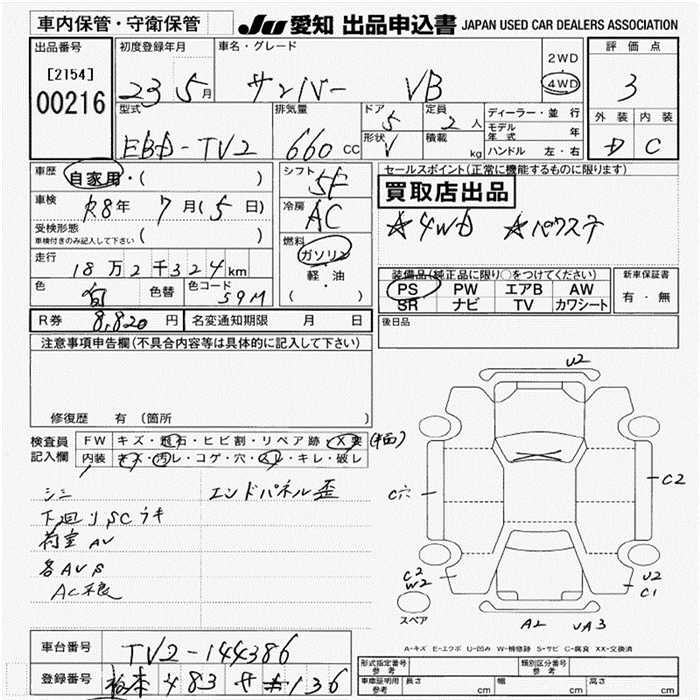 車内保管・守衛保管
JU 愛知 出品申込書 JAPAN USED CAR DEALERS ASSOCIATION
出品番号
[2154]
00216
初度登録年月
23 5月
車名・グレード
サンバー VB
2WD
4WD
評価点
3
外装 内装
D C
型式
EBD-TV2
排気量
660 cc
ドア
5
形状
V
定員
2人
積載
kg
ディーラー・並行
モデル年式 年
ハンドル 左・右
車歴
自家用・( )
車検
R8年 7月(5日)
受検形態
車検付きのみ記入して下さい ( )
走行
18万2千324km
色
色替
色コード
59M
シフト
5F
冷房
AC
燃料
ガソリン
軽・油
( ・ )
セールスポイント(正常に機能するものに限ります)
買取店出品
☆4WD ☆パワステ
装備品(純正品に限り○をつけてください)
PS PW エアB AW
SR ナビ TV カワシート
新車保証書
有・無
R券 8,820円
名変通知期限 月 日
後日品
注意事項申告欄(不具合内容等は具体的に記入して下さい)
修復歴 有(箇所 )
検査員記入欄
FW キズ・飛石・ヒビ割・リペア跡・X要
内装 キズ・汚レ・コゲ・穴・スレ・キレ・破レ
エンドパネル歪
下回りSCラキ
荷室AV
各AVS
AC不良
U2
C穴
C2
C2
W2
U2
C1
スペア
A2
UA3
A-キズ E-エクボ U-凹み W-補修跡 S-サビ C-腐食 XX-交換済
車台番号
TV2-144386
登録番号
483 サ 136
形式指定番号
参考
類別区分番号
参考
車庫証明用
参考
長さ cm
幅 cm
高さ cm